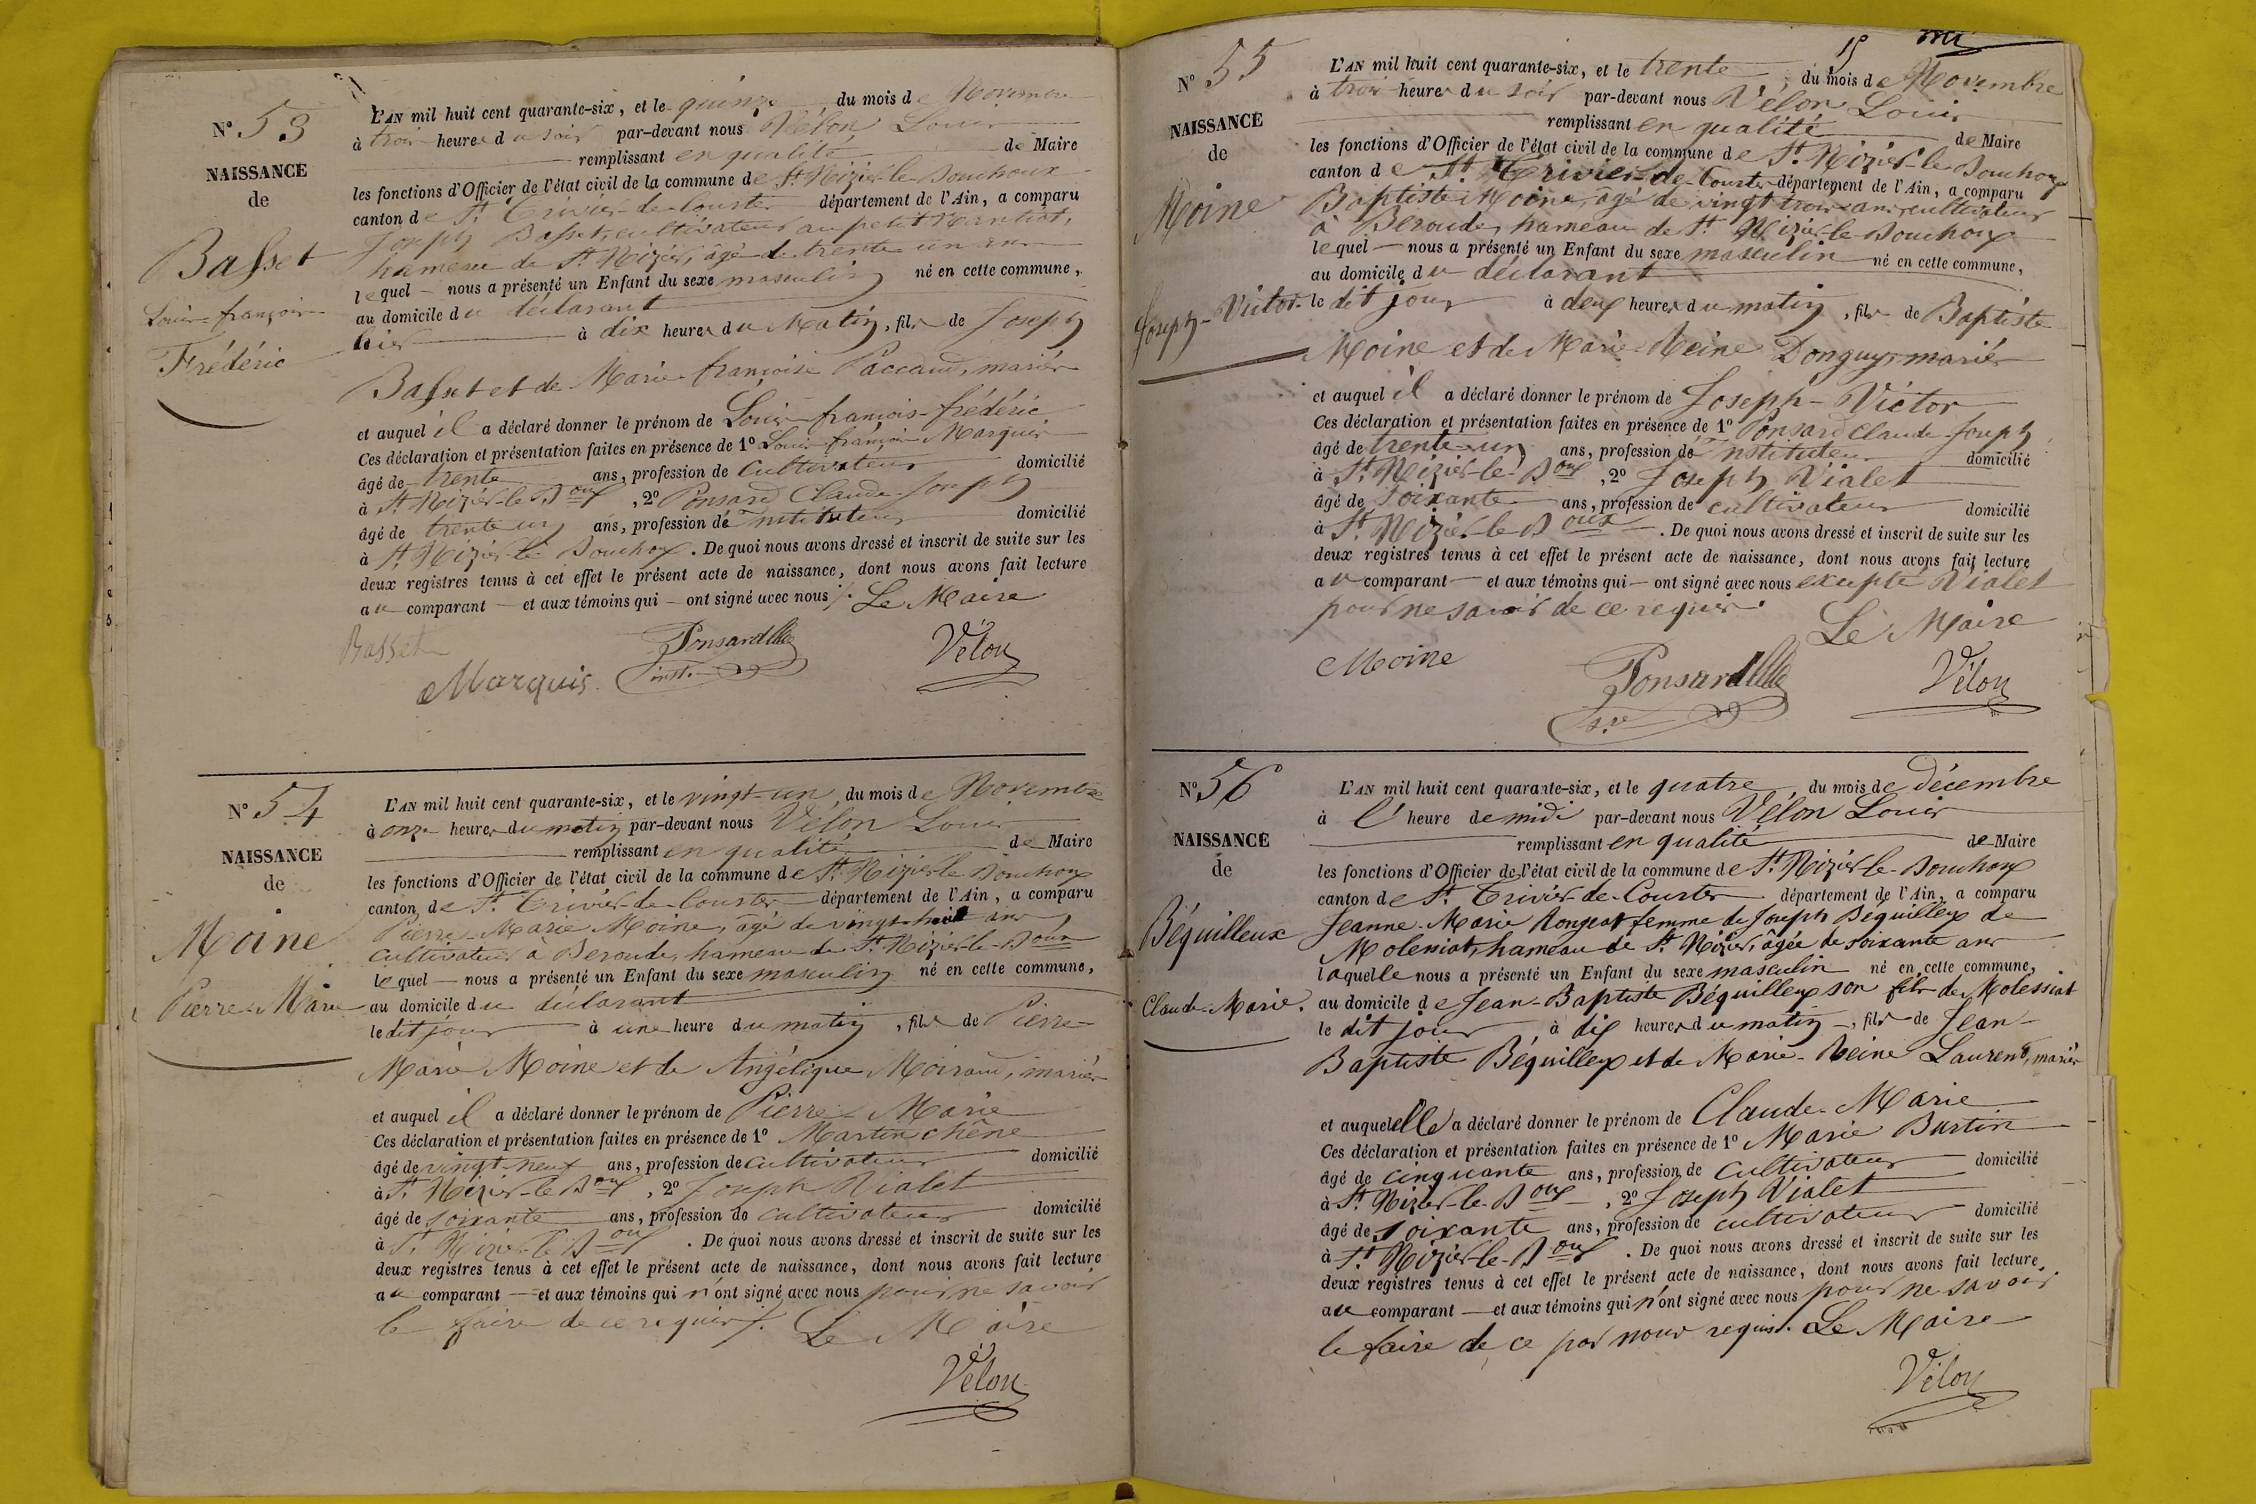 N.° 53
NAISSANCE
de
Basset
Louis-françois-
Frédéric
L'AN mil huit cent quarante-six, et le quinze du mois de Novembre
à trois heures du soir par-devant nous Vélon Louis
remplissant en qualité de Maire
les fonctions d'Officier de l'état civil de la commune de St. Nizier-le-Bouchoux
canton de St. Trivier-de-Courtes département de l'Ain, a comparu
Joseph Basset, cultivateur au petit
hameau de St. Nizier, âgé de trente un ans
lequel nous a présenté un Enfant du sexe masculin né en cette commune,
au domicile du déclarant
hier à dix heures du Matin, fils de Joseph
Basset et de Marie françoise Paccaud, mariés
et auquel il a déclaré donner le prénom de Louis-françois-frédéric
Ces déclaration et présentation faites en présence de 1° Louis françois Marquis
âgé de trente ans, profession de cultivateur domicilié
à St. Nizier-le-Boux, 2° Ponsard Claude-Joseph
âgé de trente un ans, profession de Instituteur domicilié
à St. Nizier-le-Bouchoux. De quoi nous avons dressé et inscrit de suite sur les
deux registres tenus à cet effet le présent acte de naissance, dont nous avons fait lecture
au comparant et aux témoins qui ont signé avec nous /. Le Maire
Basset
Marquis.
Ponsard
inst.
Vélon
N.° 54
NAISSANCE
de
Moine
Pierre-Marie
L'AN mil huit cent quarante-six, et le vingt-un, du mois de Novembre
à onze heures du matin par-devant nous Vélon Louis
remplissant en qualité de Maire
les fonctions d'Officier de l'état civil de la commune de St. Nizier-le-Bouchoux
canton de St. Trivier-de-Courtes département de l'Ain, a comparu
Pierre-Marie Moine, âgé de vingt-huit ans
cultivateur à Beroude, hameau de St. Nizier-le-Boux
lequel nous a présenté un Enfant du sexe masculin né en cette commune,
au domicile du déclarant
le dit jour à une heure du matin, fils de Pierre-
Marie Moine et de Angélique Moiraud, mariés
et auquel il a déclaré donner le prénom de Pierre-Marie
Ces déclaration et présentation faites en présence de 1° Martin chêne
âgé de vingt-neuf ans, profession de cultivateur domicilié
à St. Nizier-le-Boux, 2° Joseph Vialet
âgé de soixante ans, profession de cultivateur domicilié
à St. Nizier-le-Boux. De quoi nous avons dressé et inscrit de suite sur les
deux registres tenus à cet effet le présent acte de naissance, dont nous avons fait lecture
au comparant et aux témoins qui n'ont signé avec nous pour ne savoir
le faire de ce requis /. Le Maire
Vélon
15
N.° 55
NAISSANCE
de
Moine
Joseph-Victor.
L'AN mil huit cent quarante-six, et le trente, du mois de Novembre
à trois heures du soir par-devant nous Vélon Louis
remplissant en qualité de Maire
les fonctions d'Officier de l'état civil de la commune de St. Nizier-le-Bouchoux
canton de St. Trivier-de-Courtes département de l'Ain, a comparu
Baptiste Moine, âgé de vingt trois ans, cultivateur
à Beroude, hameau de St. Nizier-le-Bouchoux
lequel nous a présenté un Enfant du sexe masculin né en cette commune,
au domicile du déclarant
le dit jour à deux heures du matin, fils de Baptiste
Moine et de Marie-Reine Donguy, mariés
et auquel il a déclaré donner le prénom de Joseph-Victor
Ces déclaration et présentation faites en présence de 1° Ponsard Claude-Joseph
âgé de trente-un ans, profession de Instituteur domicilié
à St. Nizier-le-Boux, 2° Joseph Vialet
âgé de soixante ans, profession de cultivateur domicilié
à St. Nizier-le-Boux. De quoi nous avons dressé et inscrit de suite sur les
deux registres tenus à cet effet le présent acte de naissance, dont nous avons fait lecture
au comparant et aux témoins qui ont signé avec nous excepté Vialet
pour ne savoir de ce requis. Le Maire
Moine
Ponsard
Vélon
N.° 56
NAISSANCE
de
Béquilleux
Claude-Marie.
L'AN mil huit cent quarante-six, et le quatre, du mois de décembre
à l' heure de midi par-devant nous Vélon Louis
remplissant en qualité de Maire
les fonctions d'Officier de l'état civil de la commune de St. Nizier-le-Bouchoux
canton de St. Trivier-de-Courtes département de l'Ain, a comparu
Jeanne-Marie Rongeat femme de Joseph Béquilleux de
Moleniat, hameau de St. Nizier, âgée de soixante ans
laquelle nous a présenté un Enfant du sexe masculin né en cette commune,
au domicile de Jean-Baptiste Béquilleux son fils de Molessiat
le dit jour à dix heures du matin, fils de Jean-
Baptiste Béquilleux et de Marie-Reine Laurent, mariés
et auquel elle a déclaré donner le prénom de Claude-Marie
Ces déclaration et présentation faites en présence de 1° Marie Burtin
âgé de cinquante ans, profession de cultivateur domicilié
à St. Nizier-le-Boux, 2° Joseph Vialet
âgé de soixante ans, profession de cultivateur domicilié
à St. Nizier-le-Boux. De quoi nous avons dressé et inscrit de suite sur les
deux registres tenus à cet effet le présent acte de naissance, dont nous avons fait lecture
au comparant et aux témoins qui n'ont signé avec nous pour ne savoir
le faire de ce par nous requis. Le Maire
Vélon